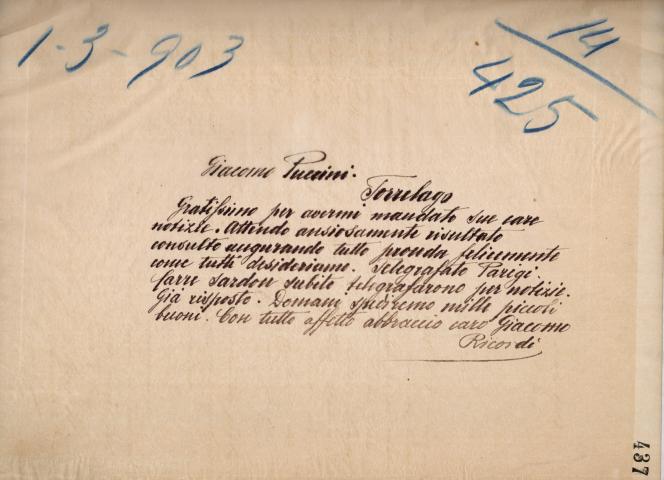 1-3-903
14/425
Giacomo Puccini.
Torrelago
Gratissimo per avermi mandato sue care
notizie. Attendo ansiosamente risultato
consulto augurando tutto proceda felicemente
come tutti desideriamo. Telegrafato Parigi.
Sardou subito telegrafarono per notizie.
Già risposto. Domani spediremo mille piccoli
buoni. Con tutto affetto abbraccio caro Giacomo
Ricordi
437